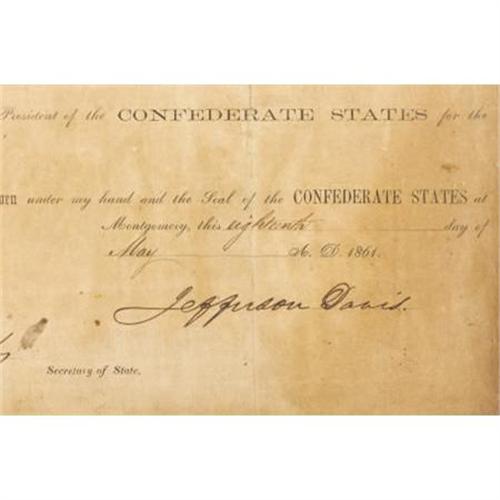 President of the CONFEDERATE STATES for the
under my hand and the Seal of the CONFEDERATE STATES at
Montgomery, this eighteenth day of
May A. D. 1861.
Jefferson Davis.
Secretary of State.